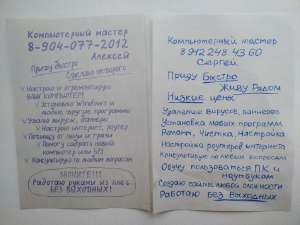 Компьютерный мастер
8-904-077-2012
Алексей
Приду быстро
Сделаю недорого
Настрою и отремонтирую
Ваш компьютер
Установка Windows и
любые другие программы
Удалю вирусы, баннеры
Настрою интернет, роутер
Почищу от пыли и грязи
Помогу собрать новый
компьютер или б/у
Консультирую по любым вопросам
ЗВОНИТЕ!!!
Работаю руками из плеч
БЕЗ ВЫХОДНЫХ!
Компьютерный мастер
8 912 248 43 60
Сергей
Приду Быстро
Живу Рядом
Низкие цены
Удаление вирусов, баннеров
Установка любых программ
Ремонт, Чистка, Настройка
Настройка роутеров интернета
Консультирую по любым вопросам
Обучу пользоваться ПК и
ноутбуком
Создаю сайты любой сложности
Работаю Без Выходных